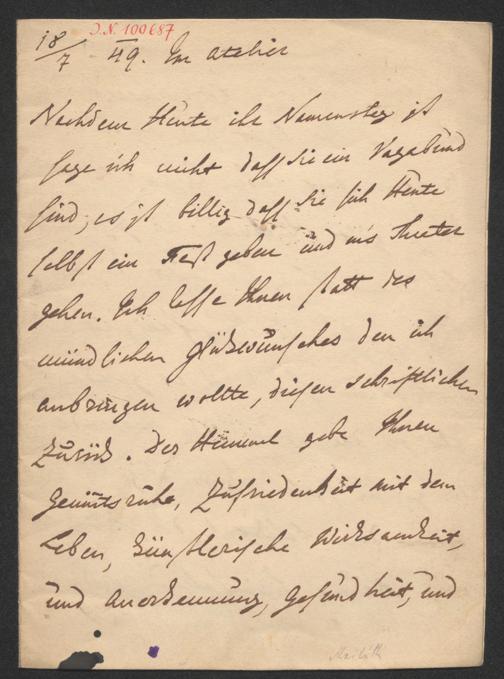 J.N. 100687
18/7 49. Im Atelier
Nachdem Heute ihr Namenstag ist
sage ich nicht daß Sie ein Vagabund
sind, es ist billig daß Sie sich Heute
selbst ein Fest geben und ins Theater
gehen. Ich lasse Ihnen statt des
mündlichen Glükwunsches den ich
anbringen wollte, diesen schriftlichen
zurük. Der Himmel gebe Ihnen
Gemütsruhe, Zufriedenheit mit dem
Leben, künstlerische Wirksamkeit,
und Anerkennung, Gesundheit, und
Mailáth